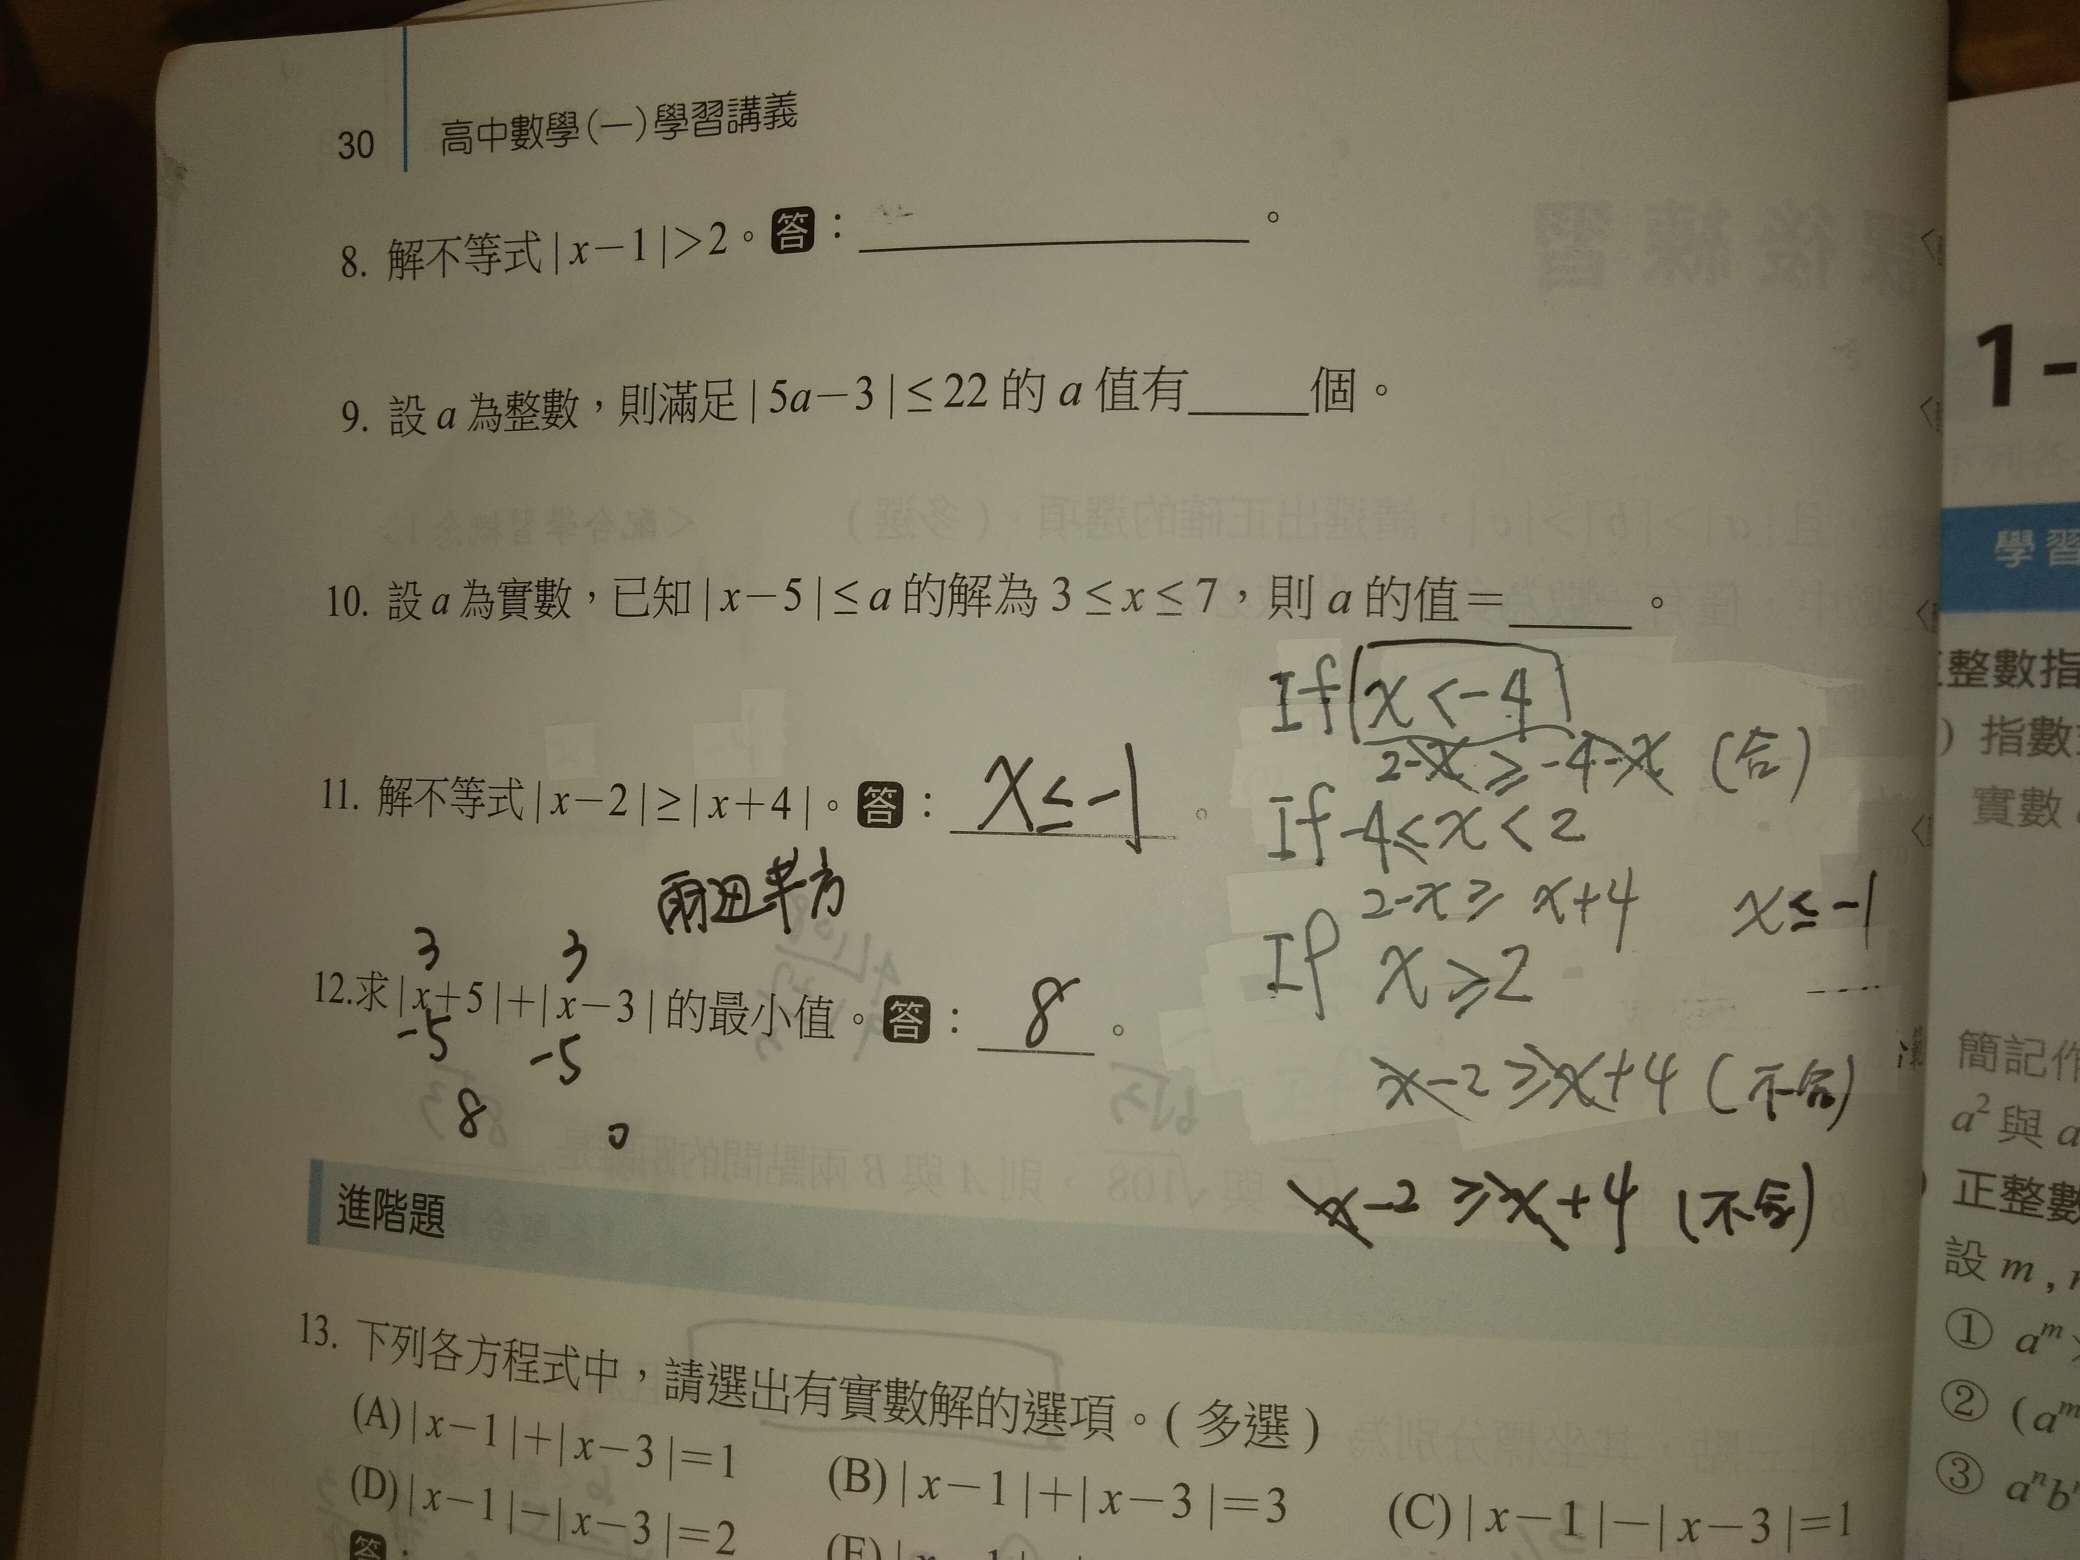 30 高中數學(一)學習講義
8. 解不等式|x－1|>2。答：＿＿＿＿。
9. 設 a 為整數，則滿足|5a－3|≤22 的 a 值有＿＿＿個。
10. 設 a 為實數，已知|x－5|≤a 的解為 3≤x≤7，則 a 的值＝＿＿＿。
If x<-4
2-x≥-4-x (合)
11. 解不等式|x－2|≥|x＋4|。答：x≤-1。
If -4≤x<2
兩边平方
2-x≥x+4 x≤-1
If x≥2
3 3
12.求|x＋5|＋|x－3|的最小值。答：8。
-5 -5
8 0
x-2≥x+4 (不合)
x-2≥x+4 (不合)
進階題
13. 下列各方程式中，請選出有實數解的選項。(多選)
(A)|x－1|＋|x－3|＝1 (B)|x－1|＋|x－3|＝3 (C)|x－1|－|x－3|＝1
(D)|x－1|－|x－3|＝2
答：
1-
學習
整數指
指數
實數
簡記作
a² 與 a
正整數
設 m ,
① aᵐ
② (aᵐ
③ aⁿb